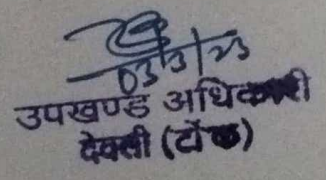 03/3/23
उपखण्ड अधिकारी
देवली (टोंक)